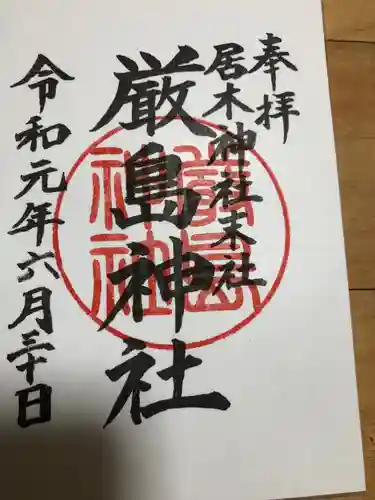 奉拝
居木神社末社
厳島神社
令和元年六月三十日